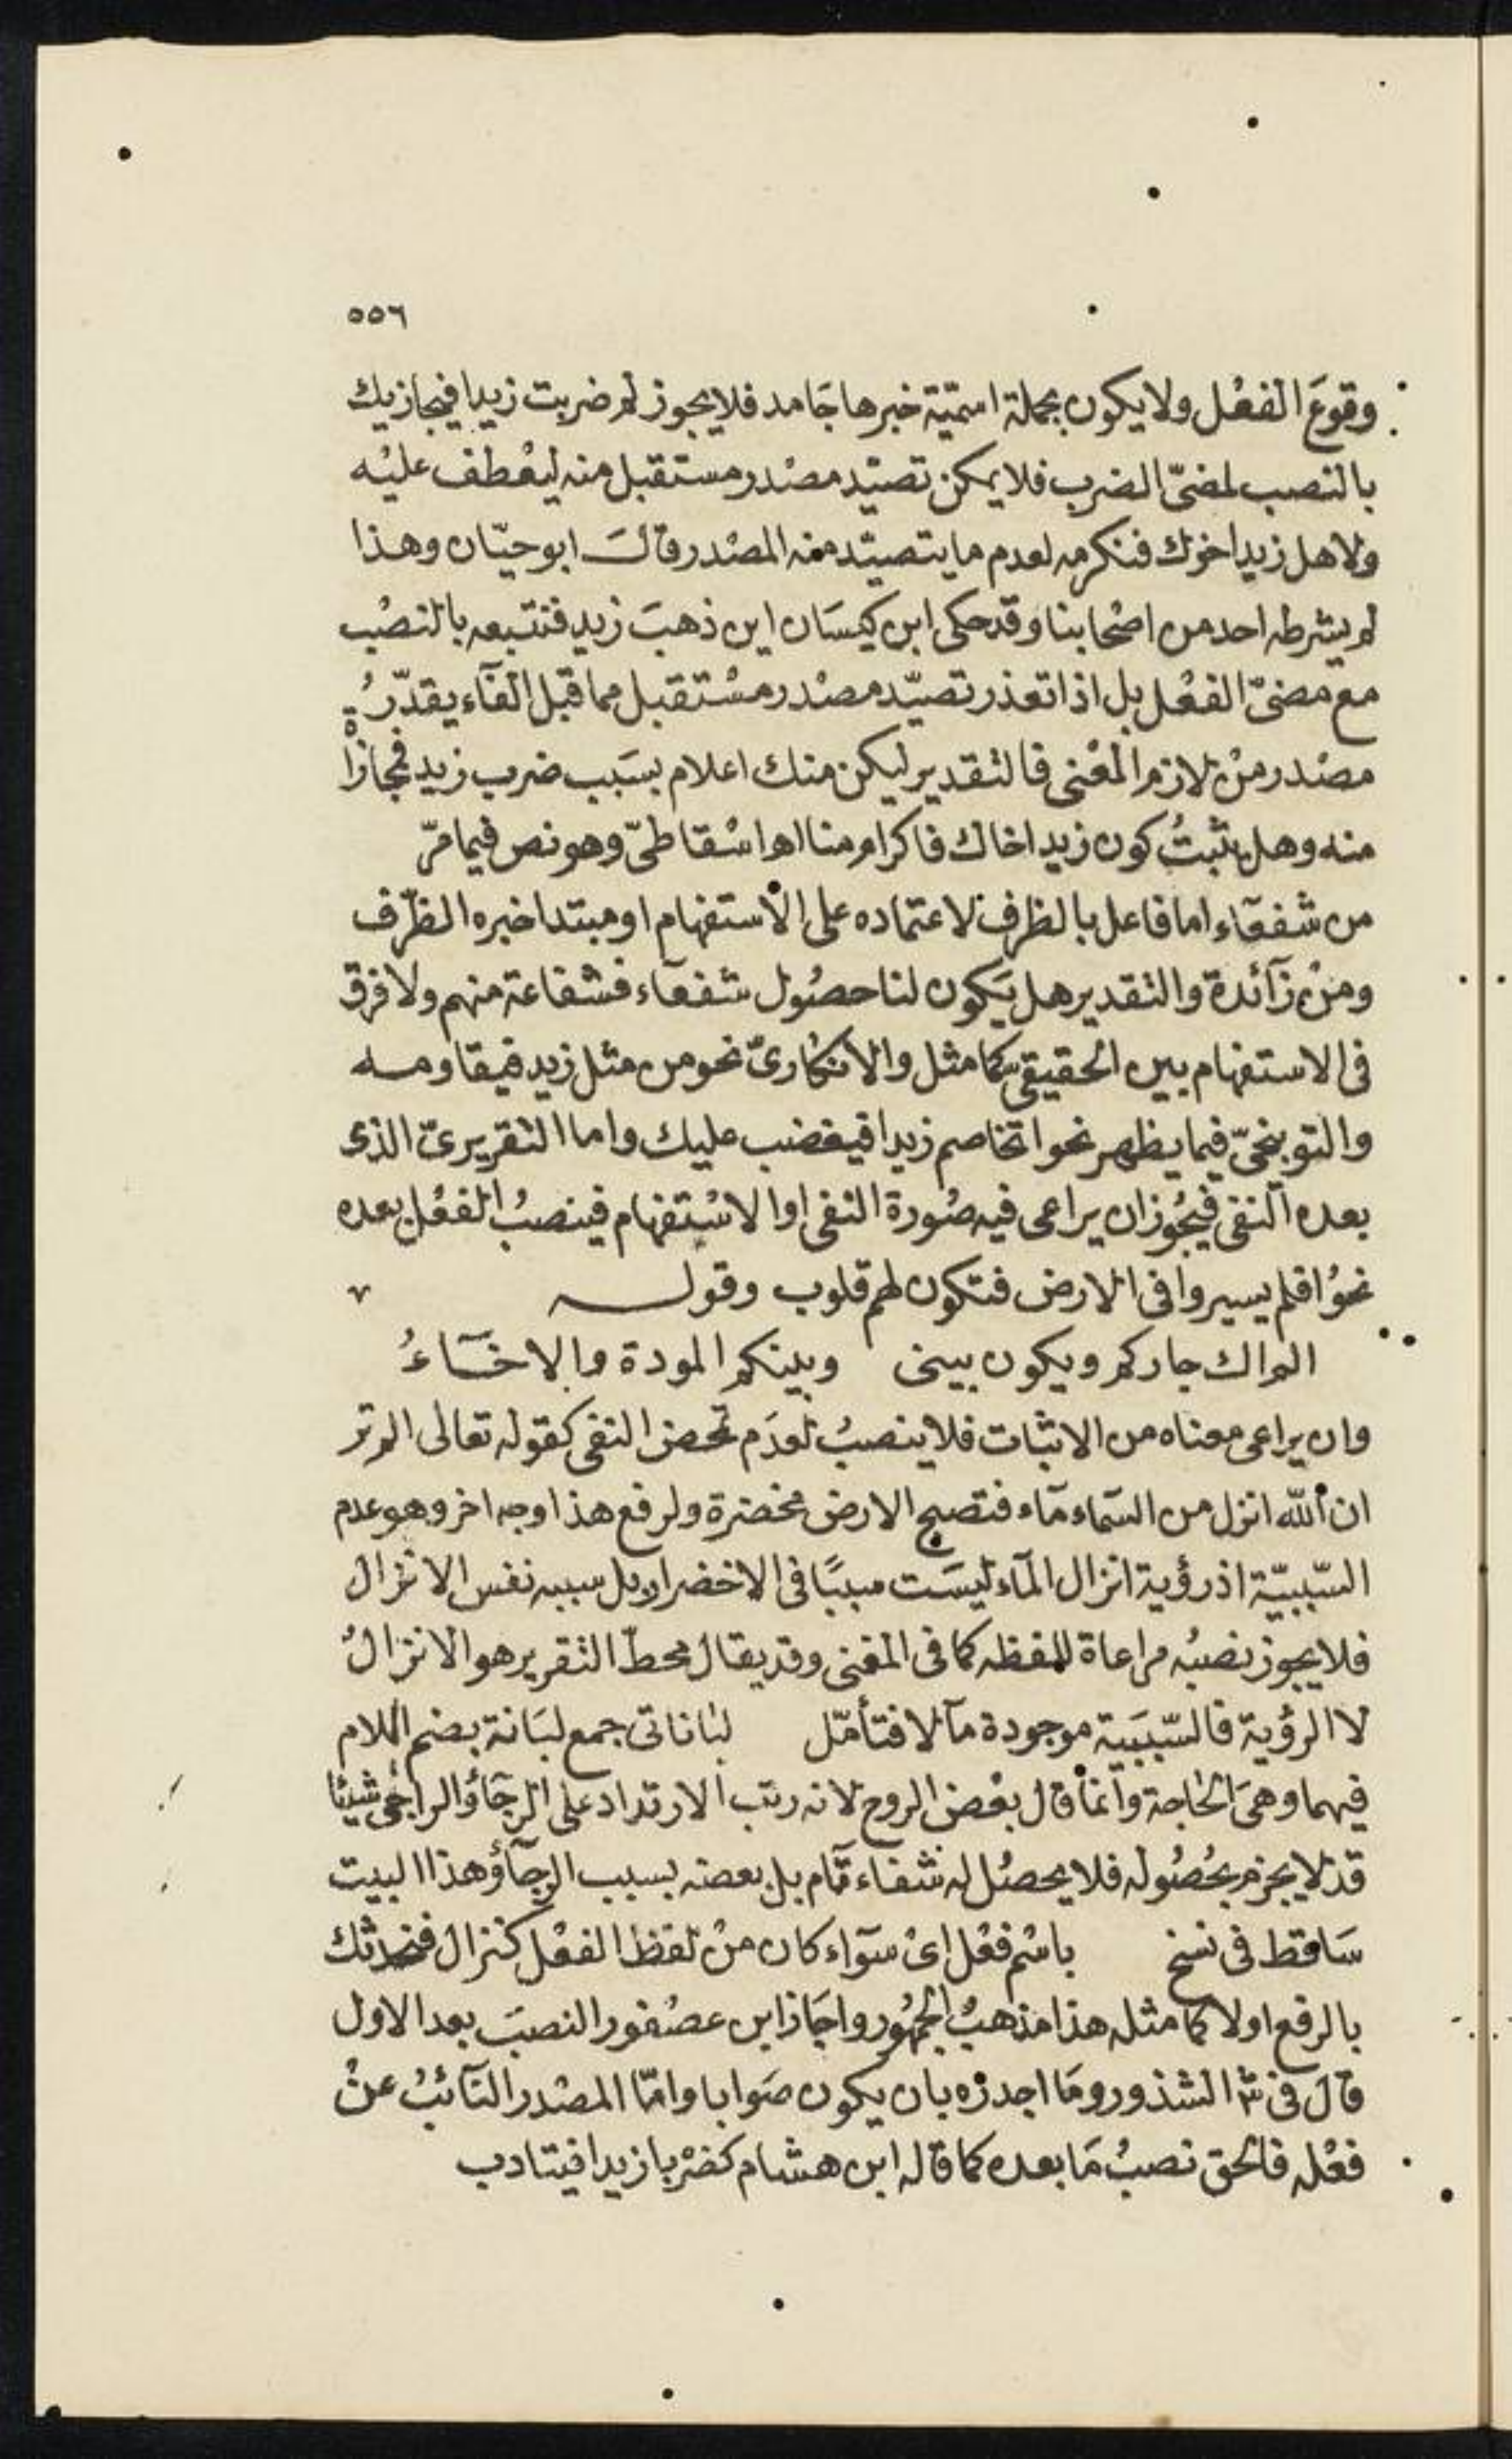 ٥٥٦
وقوعَ الفعْل ولا يكون بجملة اسميّة خبرها جَامد فلا يجوز لم ضربت زيدا فيجازيك
بالنصب لمضىّ الضرب فلا يمكن تصيّد مصْدر مستقبل منه ليعْطف عليْه
ولا هل زيد اخوك فنكرمه لعدم ما يتصيّد منه المصْدر قالَ ابو حيّان وهذا
لم يشرطه احد من اصْحابنا وقد حكى ابن كيسَان اين ذهبَ زيد فنتبعه بالنصْب
مع مضىّ الفعْل بل اذا تعذر تصيّد مصْدر مسْتقبل مما قبل الفآء يقدّرُ
مصْدر منْ لازم المعْنى فالتقدير ليكن منك اعلام بسَبب ضرب زيد فمجازاة
منه وهل يثبتُ كون زيد اخاك فاكرام منا اهـ اسْقاطىّ وهو نص فيما مرّ
من شفعآء اما فاعل بالظرف لاعتماده على الاستفهام او مبتدا خبره الظرْف
ومنْ زآئدة والتقدير هل يَكون لنا حصُول شفعآء فشفاعة منهم ولا فرق
فى الاستفهام بين الحقيقى كما مثل والانكارىّ نحو من مثل زيد فيقاومه
والتوبيخىّ فيما يظهر نحو اتخاصم زيدا فيغضب عليك واما التقريرىّ الذى
بعده النفى فيجُوز ان يراعى فيه صُورة النفى او الاسْتفهام فينصبُ الفعْل بعده
نحوُ افلم يسيروا فى الارض فتكون لهم قلوب وقوله
الم اك جاركم ويكون بينى وبينكم المودة والاخَآءُ
وان يراعى معناه من الاثبات فلا ينصبُ لعدَم تمحض النفى كقوله تعالى الم تر
ان الله انزل من السّمآء مآء فتصبح الارض مخضرة ولرفع هذا وجه اخر وهو عدم
السّببيّة اذ رؤية انزال المآء ليسَت سببًا فى الاخضرار بل سببه نفس الانزال
فلا يجوز نصبُه مراعاة للفظه كما فى المغنى وقد يقال محطّ التقرير هو الانزالُ
لا الرؤية فالسّببَية موجودة مآلا فتأمّل لباناتى جمع لبَانة بضم اللام
فيهما وهىَ الحَاجة وانما قال بعْض الروح لانه رتب الارتداد على الرجَآء والراجى شيئا
قد لا يجزم بحُصُوله فلا يحصُل له شفآء تآم بل بعضه بسبب الرجآء وهذا البيت
سَاقط فى نسخ باسْم فعْل اىْ سوآء كان منْ لفظ الفعْل كنزال فنحدثك
بالرفع اولا كما مثله هذا مذهبُ الجمهُور واجَاز ابن عصْفور النصبَ بعد الاول
قال فى ش الشذور ومَا اجدره بان يكون صَوابا وامّا المصْدر النآئبُ عنْ
فعْله فالحق نصبُ مَا بعده كما قاله ابن هشام كضرْبا زيدا فيتادب